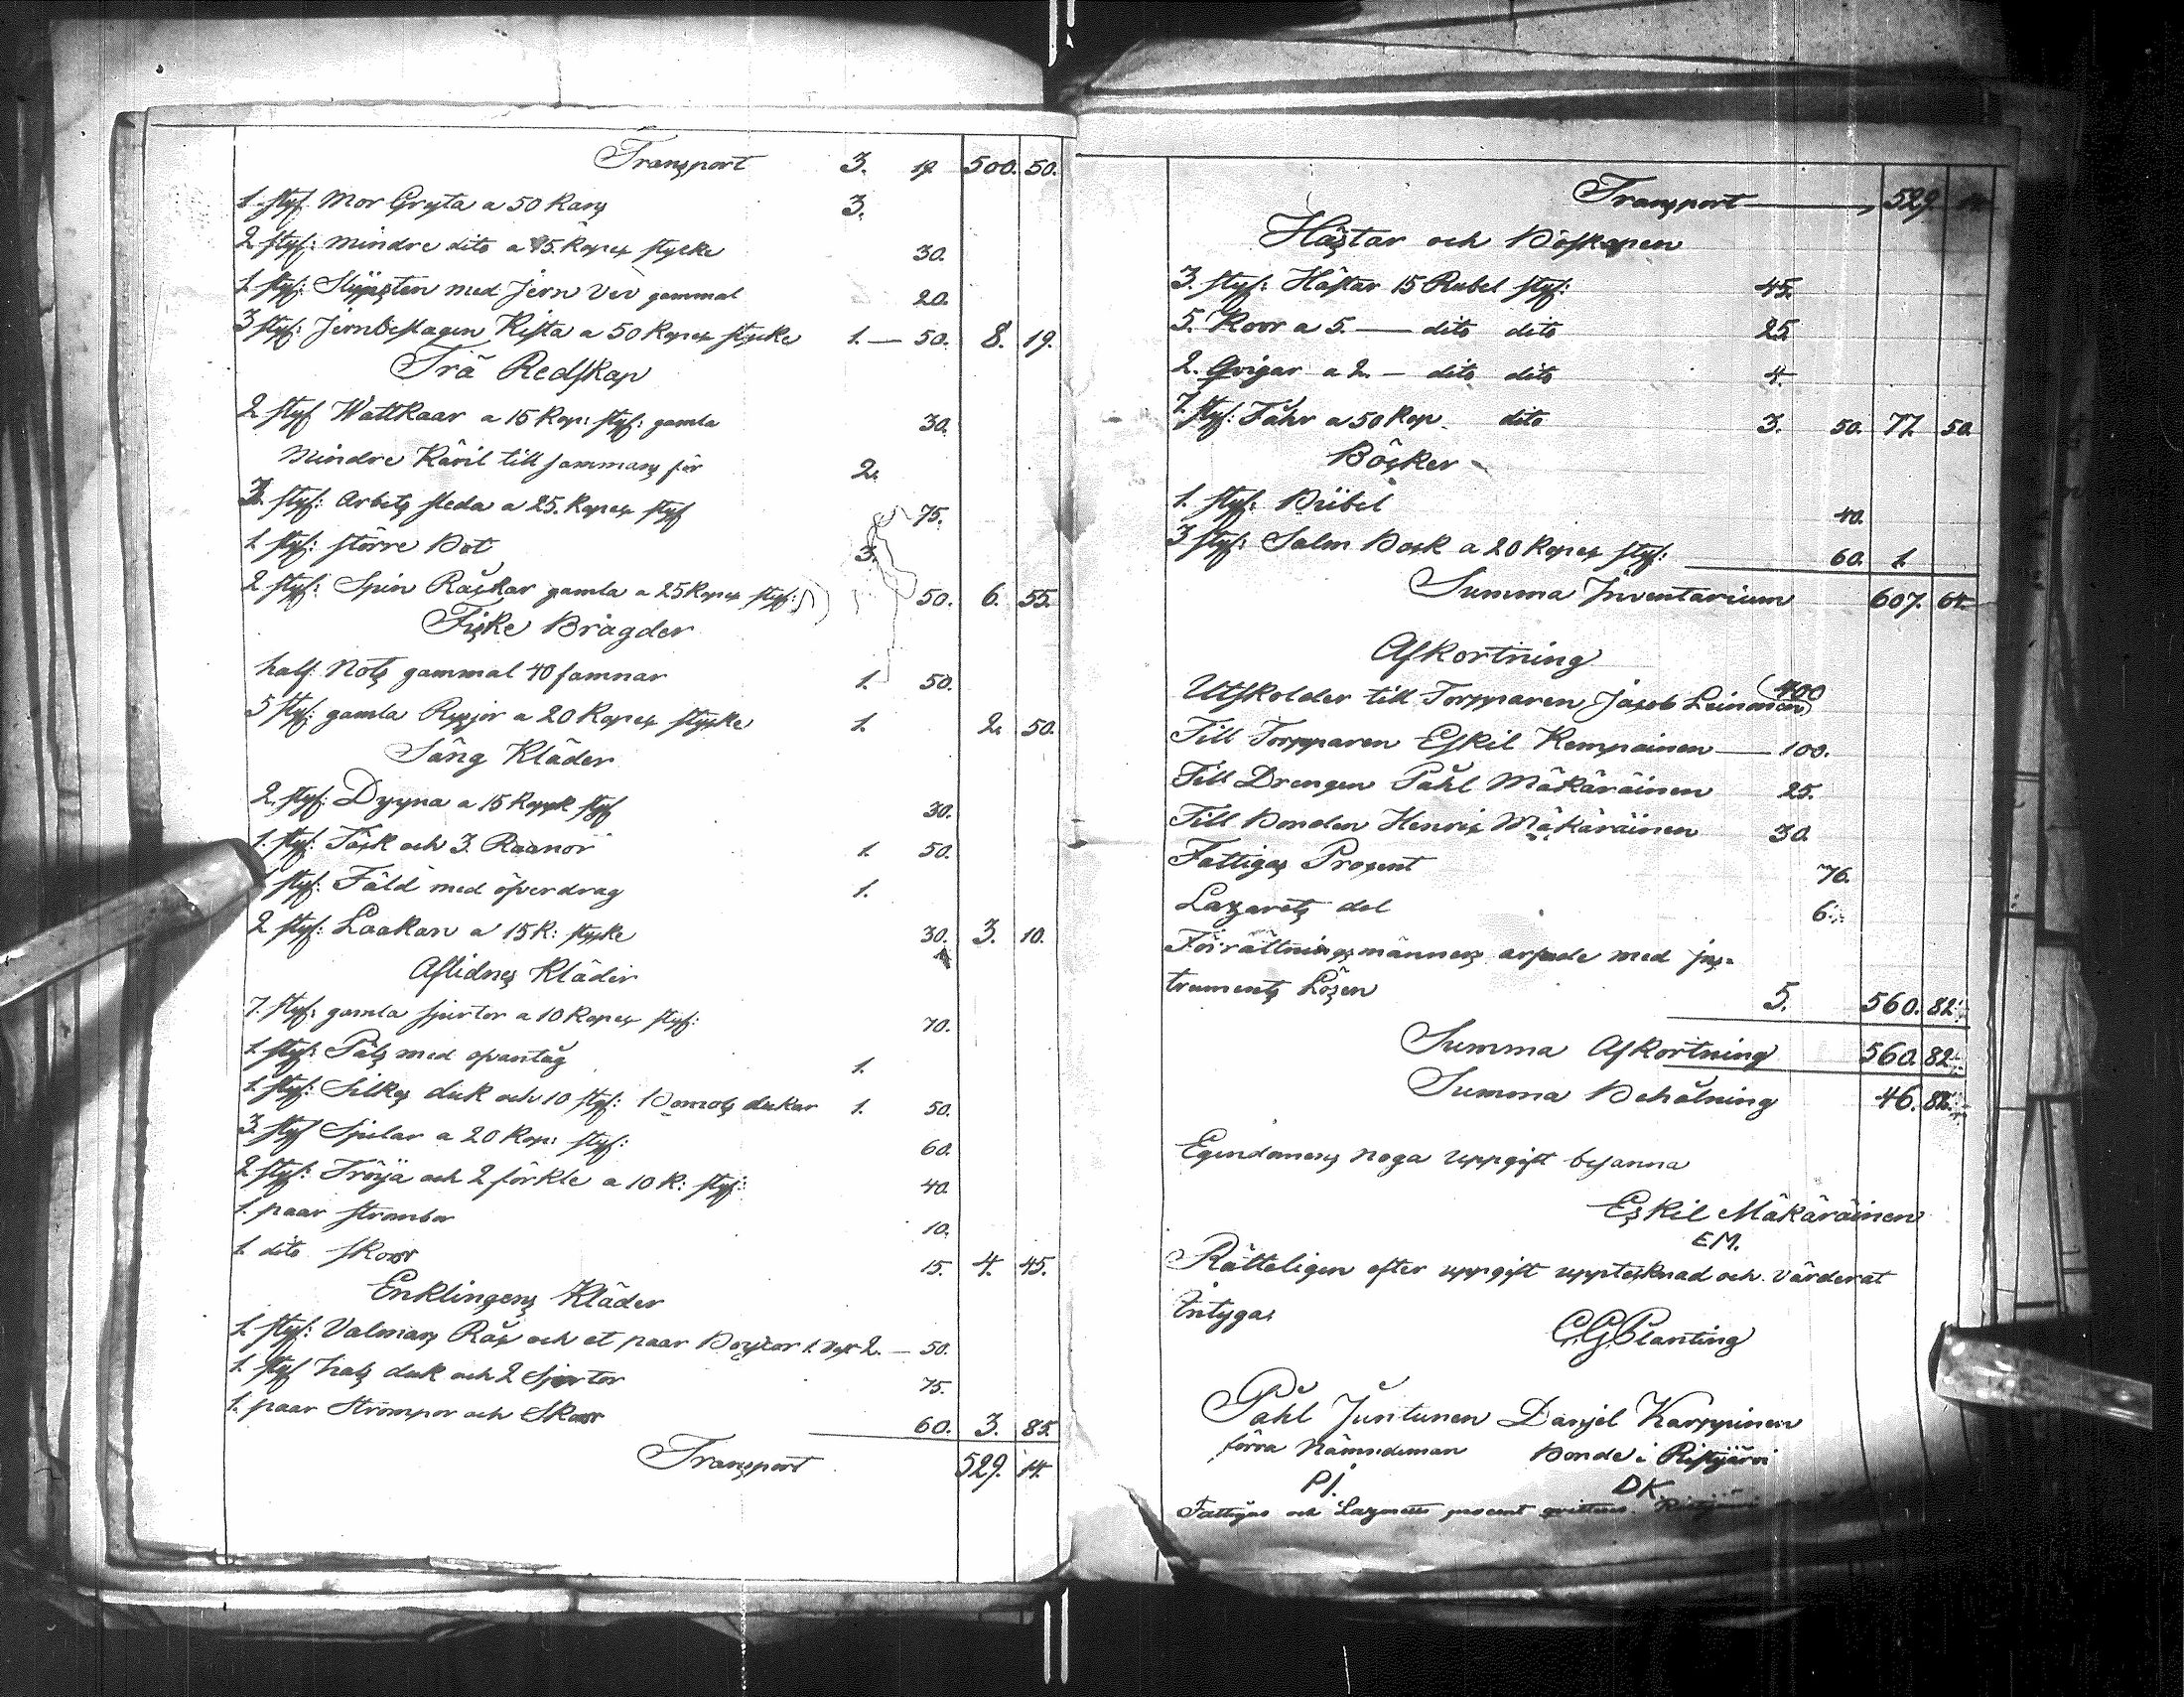 Transport 3. 19 500. 50.
1. styk: Mor Gryta a 50 Kans 3.
2 styk: mindre dito a 15. Kopek stycke 30.
1. styk: Slypsten med Jern Vev gammal 20.
3 styk: Jernbeslagen Kista a 50 Kopek stycke 1. — 50. 8. 19.
Trä Redskap
2 styk Wattkaar a 15 Kop: styk: gamla 30.
Mindre Käril till sammans för 2.
3. styk: Arbets sleda a 25. Kopek styk 75.
1 styk: större Bot 3.
2 styk: Spin Råckar gamla a 25 Kopek styk: 50. 6. 55.
Fiske Bragder
half. Nots gammal 40 famnar 1. 50.
5 styk: gamla Rysjor a 20 Kopek stycke 1. 2. 50.
Säng Kläder
2. styk: Dyyna a 15 Kopek styk 30.
1. styk: Täck och 3. Raanor 1. 50.
1 styk: Fäld med öfverdrag 1.
2 styk: Laakan a 15 K: stycke 30. 3. 10.
Aflidnes Kläder
7. styk: gamla sjortor a 10 Kopek styk: 70.
1. styk: Päls med ofvantäg 1.
1. styk: Silkes duk och 10 styk: Bomols dukar 1. 50.
3. styk Sjolar a 20 Kop: styk: 60.
2 styk: Tröyja och 2 förkle a 10 K: styk: 40.
1. paar strombor 10.
1. dito skoor 15. 4. 45.
Enklingens Kläder
1. styk: Valmars Råk och et paar Boyxor 1. Väst 2. — 50.
1. styk hals duk och 2 Sjortor 75.
1. paar Strompor och Skoor 60. 3. 85.
Transport 529. 14.
Transport 529 14
Hästar och Boskapen
3. styk: Hästar 15 Rubel styk: 45.
5. Koor a 5. — dito dito 25.
2. Qvigar a 2. — dito dito 4.
7. styk: Fåhr a 50 Kop. dito 3. 50. 77. 50
Böcker
1. styk: Biibel 40.
3 styk: Salm Bock a 20 Kopek styk: 60. 1.
Summa Inventarium 607. 64.
Afkortning
Utskolder till Torpparen Jacob Leinonen 400
Till Torpparen Eskil Kempainen — 100.
Till Drengen Påhl Mäkäräinen 25.
Till Bonden Henrik Mäkäräinen 30.
Fattigas Prosent 76.
Lazarets del 6.
Förrättningsmännens arfvode med Ins-
truments Lösen 5. 560. 82.
Summa Afkortning 560. 82.
Summa Behålning 46. 82.
Egendomens noga uppgift besanna
Eskil Mäkäräinen
EM.
Rätteligen efter uppgift upptecknad och värderat
Intygar
C.G. Planting
Påhl Juntunen Danjel Karppinen
förra Nämndeman Bonde i Ristijärvi
PJ. DK
Fattigas och Lazaretts procent qvitteras. Ristijärvi